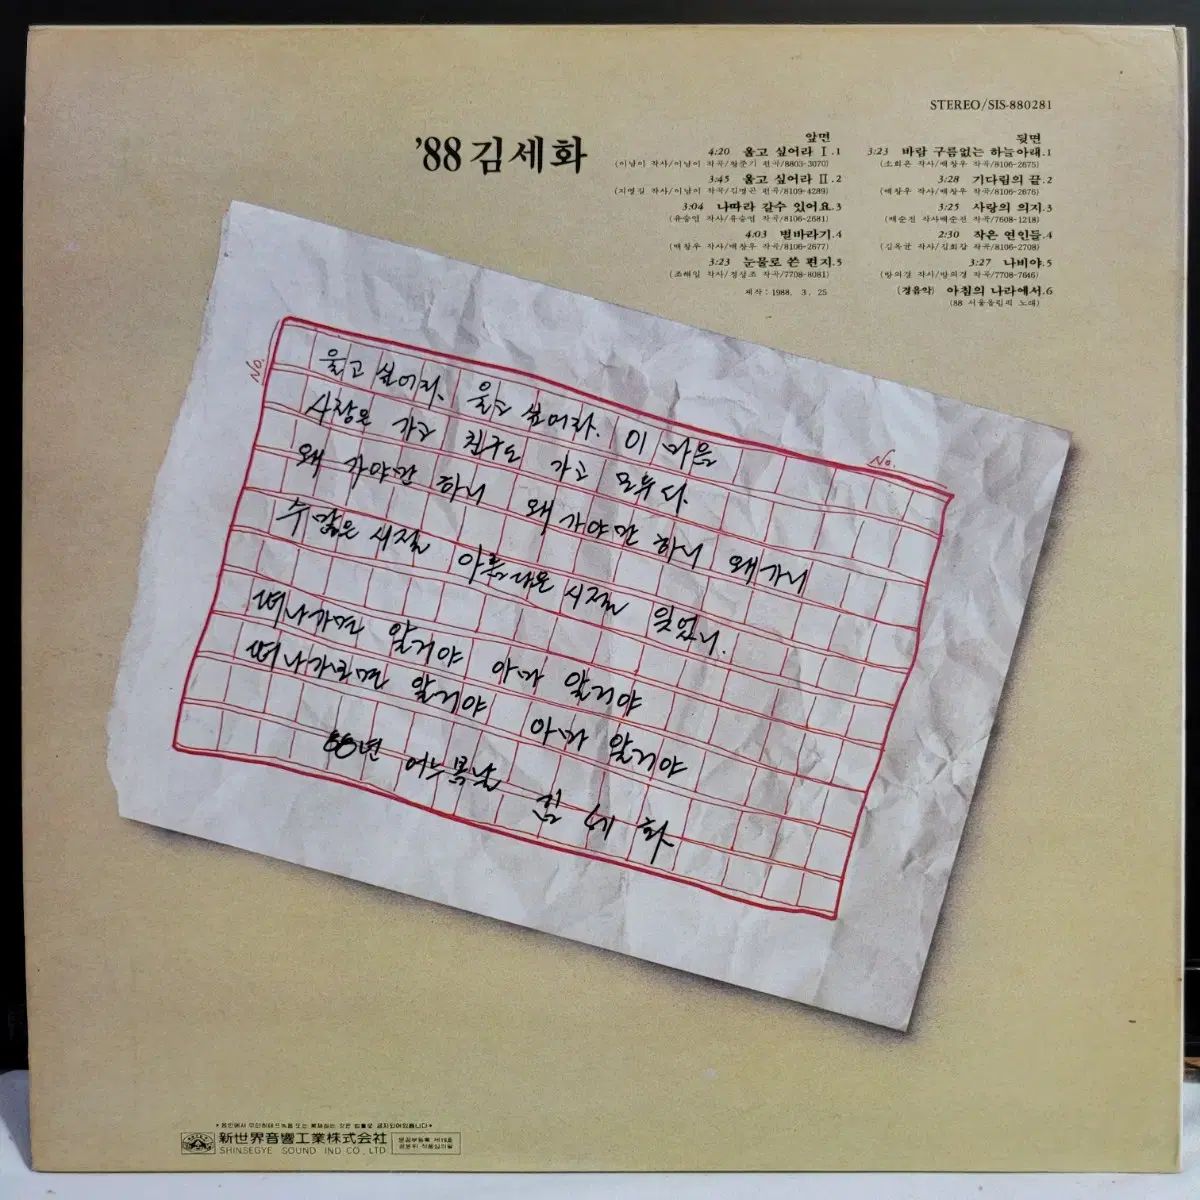 STEREO/SIS-880281
'88 김세화
앞면
4:20 울고 싶어라 Ⅰ.1
(이남이 작사/이남이 작곡/황준기 편곡/8803-3070)
3:45 울고 싶어라 Ⅱ.2
(지명길 작사/이남이 작곡/김명곤 편곡/8109-4289)
3:04 나따라 갈수 있어요.3
(유승엽 작사/유승엽 작곡/8106-2681)
4:03 별바라기.4
(배창우 작사/배창우 작곡/8106-2677)
3:23 눈물로 쓴 편지.5
(조해일 작사/정성조 작곡/7708-8081)
제작:1988. 3. 25
뒷면
3:23 바람 구름없는 하늘아래.1
(소희은 작사/배창우 작곡/8106-2675)
3:28 기다림의 끝.2
(배창우 작사/배창우 작곡/8106-2676)
3:25 사랑의 의지.3
(배순진 작사배순진 작곡/7608-1218)
2:30 작은 연인들.4
(김옥균 작사/김희갑 작곡/8106-2708)
3:27 나비야.5
(방의경 작사/방의경 작곡/7708-7646)
(경음악) 아침의 나라에서.6
(88 서울올림픽 노래)
No.
No.
울고 싶어라. 울고 싶어라. 이 마음
사랑은 가고 친구도 가고 모두 다.
왜 가야만 하니 왜 가야만 하니 왜 가니
수 많은 시절 아름다운 시절 잊었니.
떠나가면 알거야 아마 알거야
떠나가보면 알거야 아마 알거야
88년 어느 봄날 김 세 화
新世界音響工業株式会社
SHINSEGYE SOUND IND CO., LTD
문공부등록 제19호